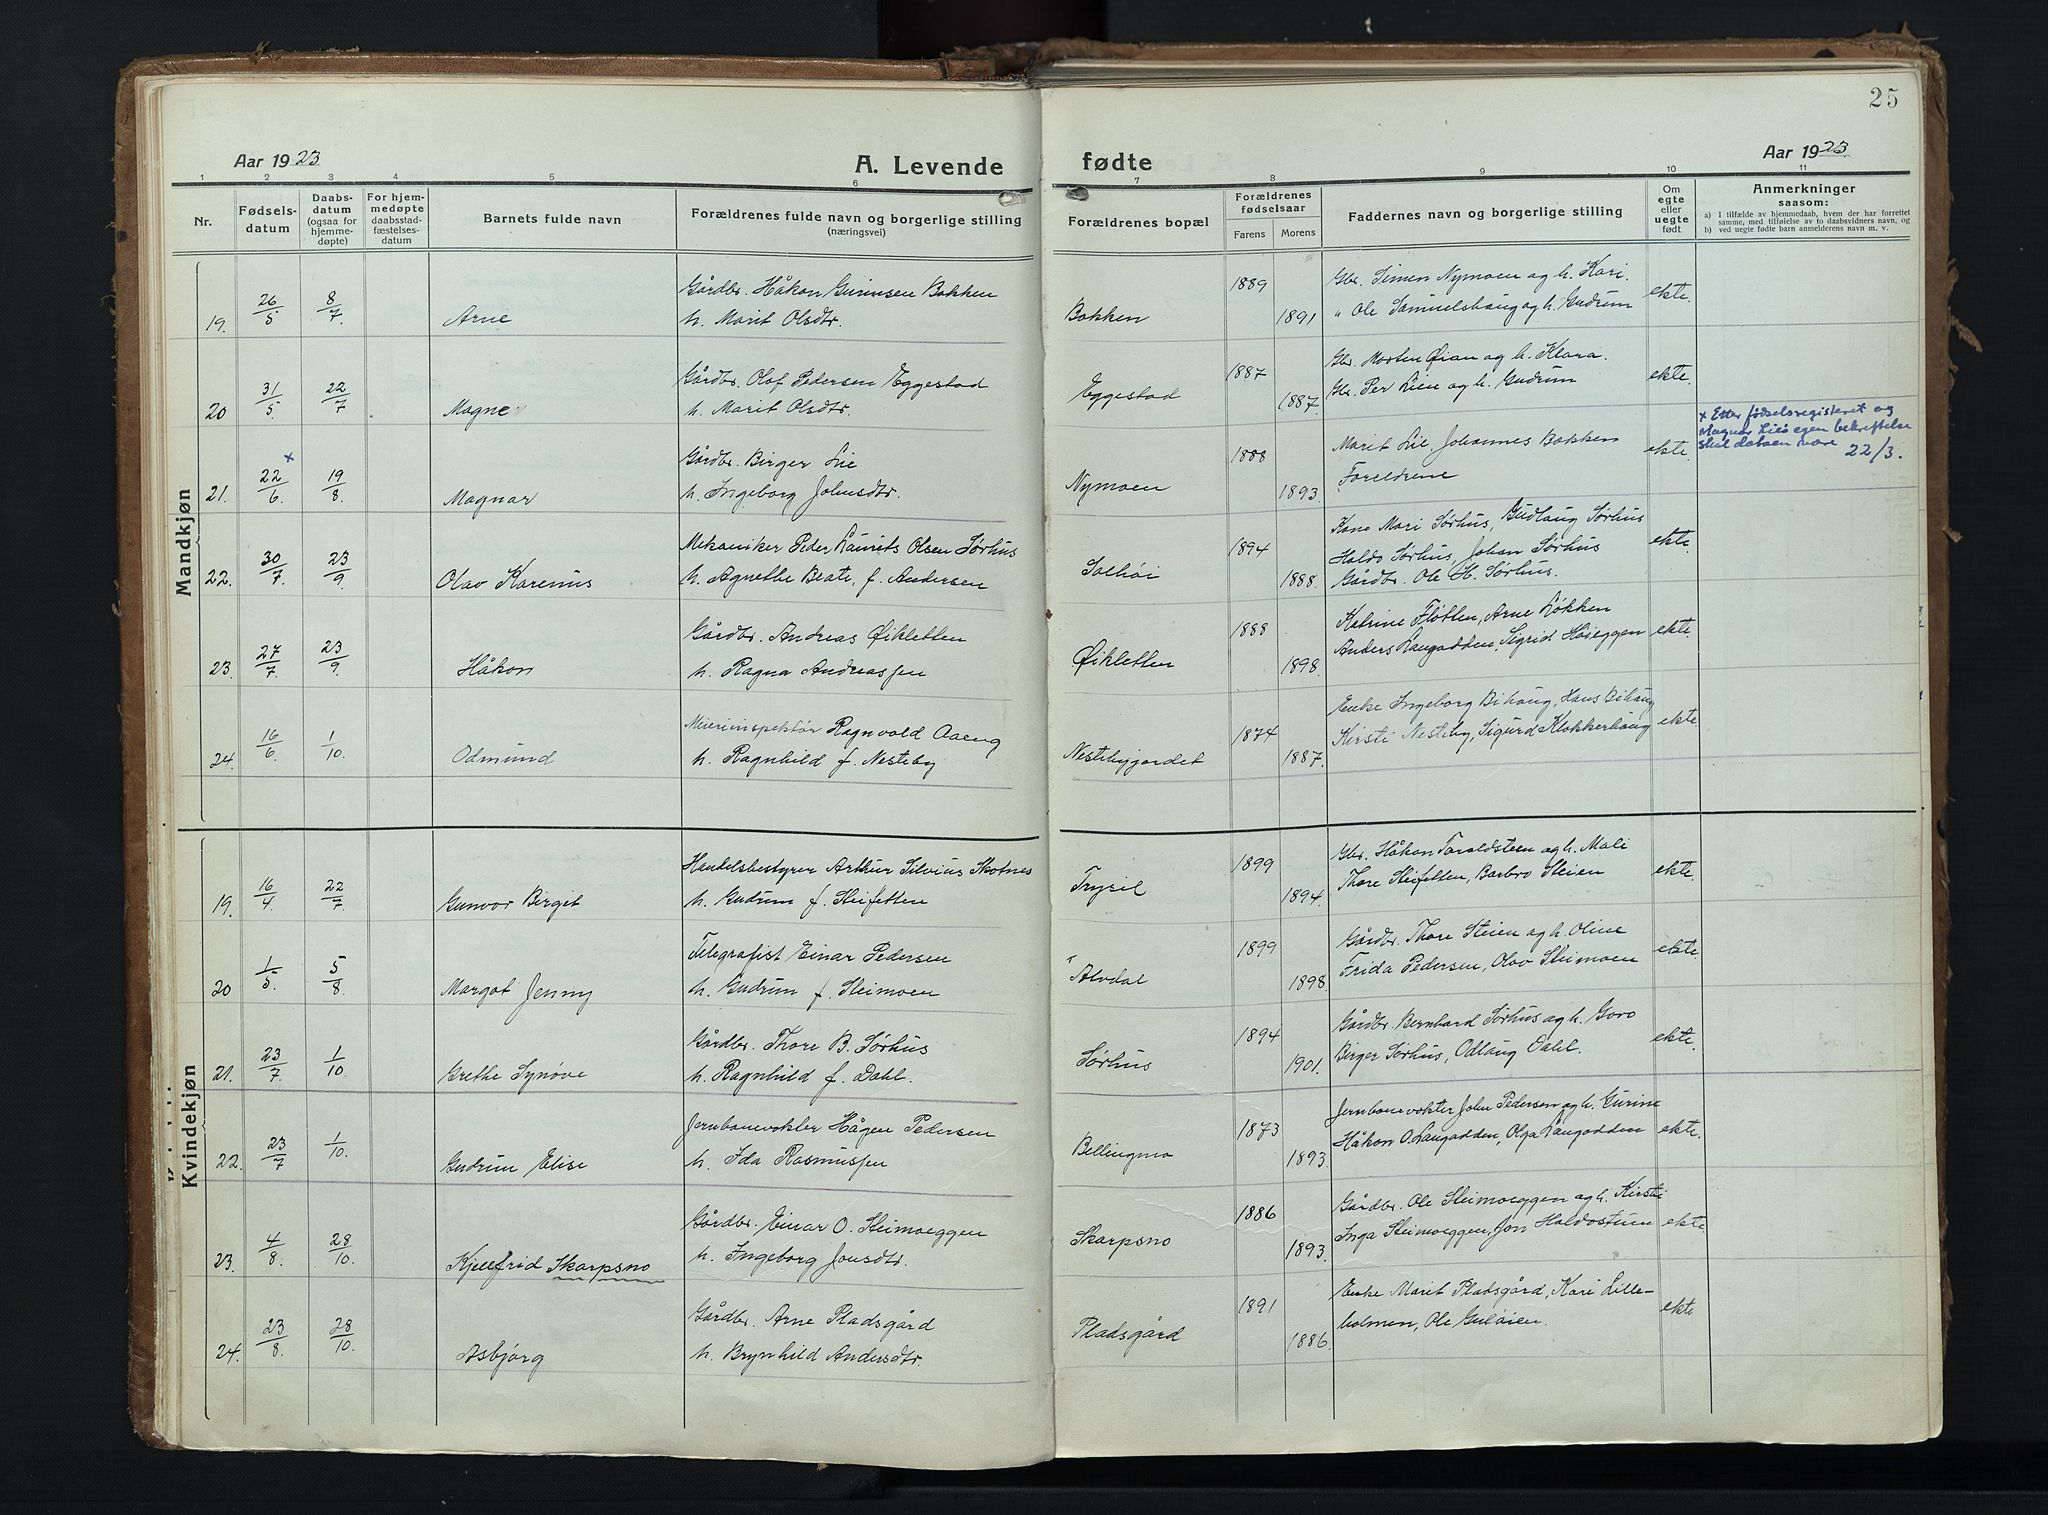 25
Aar 1923
A. Levende fødte
Aar 1923
1 2 3 4 5 6 7 8 9 10 11
Nr.
Fødselsdatum
Daabsdatum (ogsaa for hjemmedøpte)
For hjemmedøpte daabsstadfæstelsesdatum
Barnets fulde navn
Forældrenes fulde navn og borgerlige stilling (næringsvei)
Forældrenes bopæl
Forældrenes fødselsaar
Farens Morens
Faddernes navn og borgerlige stilling
Om egte eller uegte født
Anmerkninger saasom:
a) I tilfælde av hjemmedaab, hvem der har forrettet samme, med tilføielse av to daabsvidners navn, og
b) ved uegte fødte barn anmelderens navn m. v.
Mandkjøn
19. 26/5 8/7. Arne
Gårdbr. Håkon Gurinsen Bakken
h. Marit Olsdtr.
Bakken 1889 1891
Gbr. Simen Nymoen og h. Kari.
" Ole Samuelshaug og h. Gudrum
ekte.
20 31/5 22/7 Magne
Gårdbr. Olof Pedersen Eggestad
h. Marit Olsdtr.
Eggestad 1887 1887.
Gbr. Morten Øian og h. Klara.
Gbr. Per Lien og h. Gudrum
ekte.
21. 22/6. x 19/8. Magnar
Gårdbr. Birger Lie
h. Ingeborg Johnsdtr.
Nymoen 1888 1893.
Marit Lie, Johannes Bakken
Foreldrene
ekte.
x Etter fødselsregisteret og
Magnar Lies egen bekreftelse
skal datoen være 22/3.
22. 30/7. 23/9. Olav Karenus
Mekaniker Peder Laurits Olsen Sørhus
h. Agnethe Beate, f. Andersen
Solhøi 1894 1888.
Kone Mari Sørhus, Gudlaug Sørhus
Haldo Sørhus, Johan Sørhus
Gårdbr. Ole H. Sørhus.
ekte.
23. 27/7. 23/9. Håkon
Gårdbr. Andreas Øikletten
h. Ragna Andreassen
Øikletten 1888 1898.
Katrine Fløtten, Arne Løkken
Anders Langodden, Sigrid Høieggen
ekte.
24. 16/6. 1/10. Odmund
Meieriinspektør Ragnvold Aaeng
h. Ragnhild f. Nesteby
Nestebygardet 1874 1887.
Enke Ingeborg Bihaug, Hans Bihaug
Kirsti Nesteby, Sigurd Klokkerhaug
ekte.
Kvindekjøn
19. 16/4 22/7. Gunvor Birgit
Handelsbestyrer Arthur Silvius Skotnes
h. Gudrum f. Steifetten
Trysil 1899 1894.
Gbr. Håkon Taraldsteen og h. Mali
Thore Steifetten, Barbro Steien
ekte.
20 1/5. 5/8. Margot Jenny
Telegrafist Einar Pedersen
h. Gudrum f. Steimoen
Alvdal 1899 1898.
Gårdbr. Thore Steien og h. Oline
Frida Pedersen, Olav Steimoen
ekte.
21. 23/7. 1/10. Grethe Synøve
Gårdbr. Thore B. Sørhus
h. Ragnhild f. Dahl.
Sørhus 1894 1901.
Gårdbr. Bernhard Sørhus og h. Goro
Birger Sørhus, Odlaug Dahl.
ekte.
22. 23/7 1/10. Gudrum Elise
Jernbanevokter Hågen Pedersen
h. Ida Rasmussen
Bellingmo 1873 1893.
Jernbanevokter John Pedersen og h. Gurine
Håkon O. Langodden, Olga Langodden
ekte.
23. 4/8. 28/10. Kjellfrid Skarpsno
Gårdbr. Einar O. Steimoeggen
h. Ingeborg Jonsdtr.
Skarpsno 1886 1893.
Gårdbr. Ole Steimoeggen og h. Kirsti
Inga Steimoeggen, Jon Haldostuen
ekte
24. 23/8. 28/10. Asbjørg
Gårdbr. Arne Pladsgård
h. Brynhild Andersdtr.
Pladsgård 1891 1886.
Enke Marit Pladsgård, Kari Lille-
holmen, Ole Guløien.
ekte